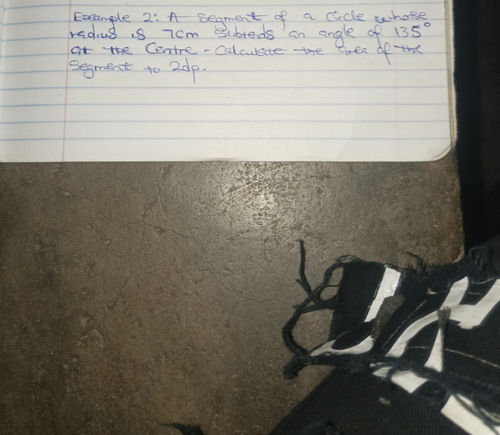 Example 2: A segment of a circle whose
radius is 7cm subtends an angle of 135°
at the centre. Calculate the area of the
segment to 2dp.